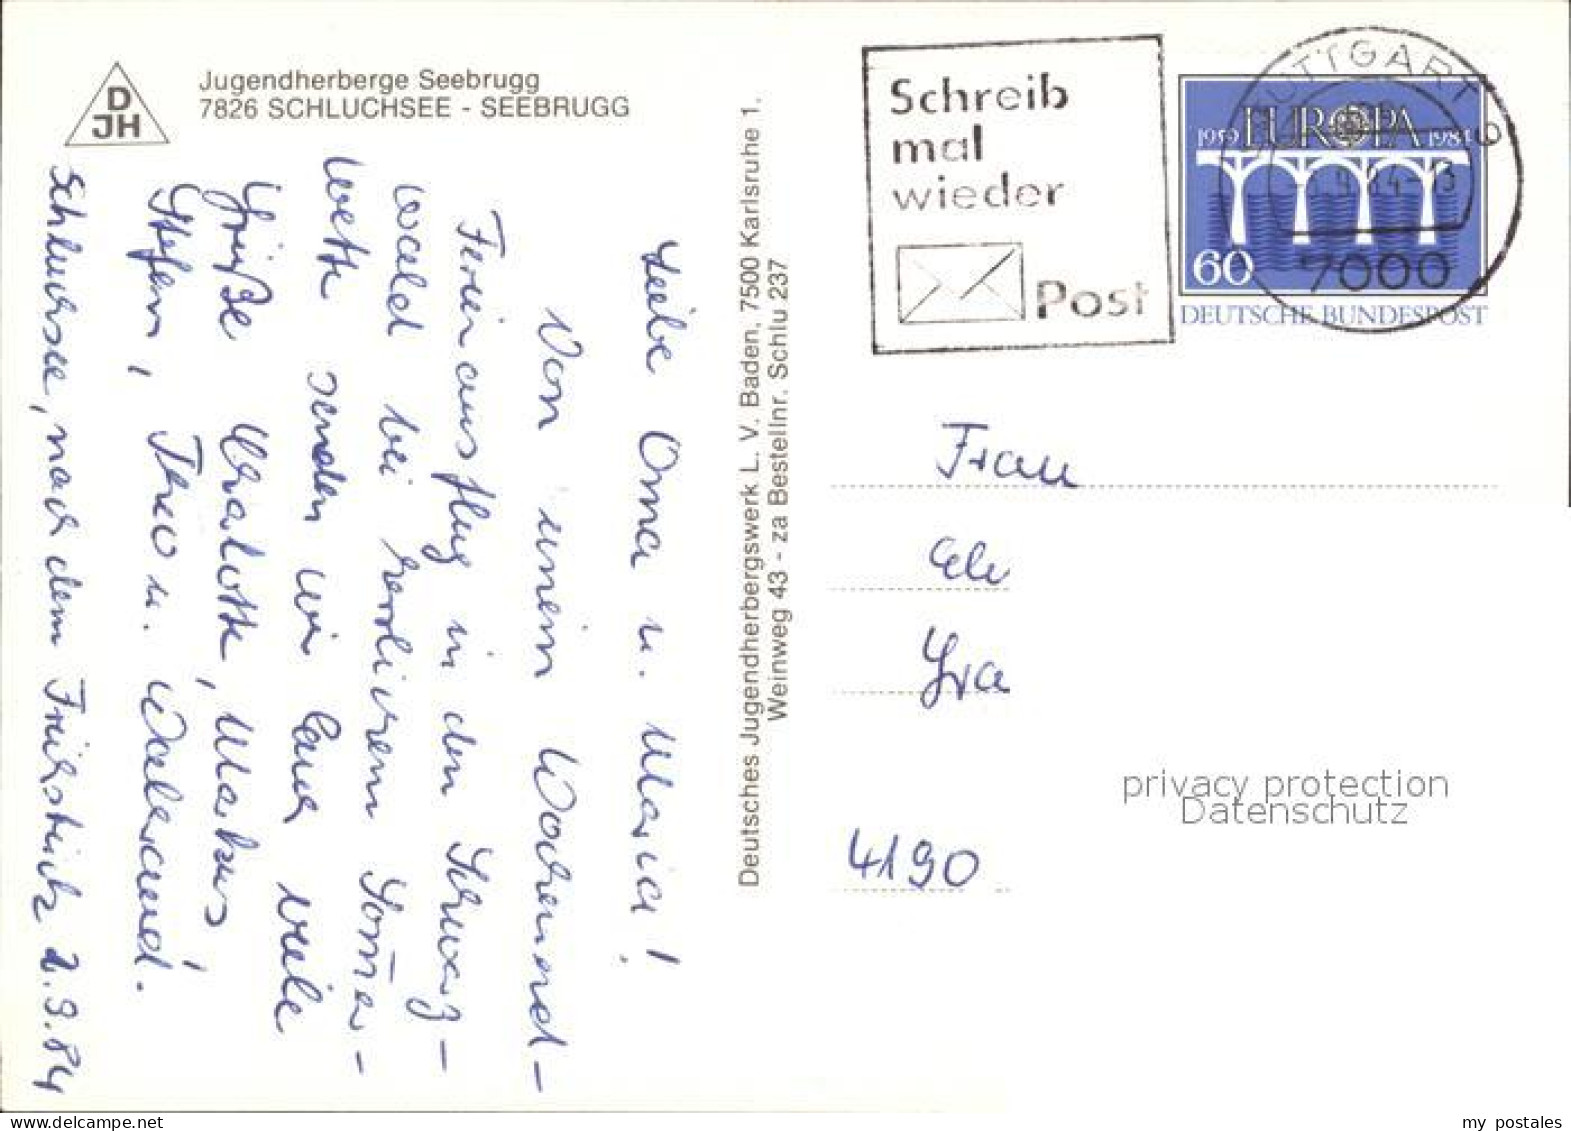 D
JH
Jugendherberge Seebrugg
7826 SCHLUCHSEE - SEEBRUGG
Liebe Oma u. Maria!
Von einem Wochenend-
Ferienausflug in den Schwarz-
wald bei herrlichem Sommer-
wette senden wir Euch viele
Grüße Charlotte, Markus
Stefan, Theo u. Waltraud.
Schluchsee, nach dem Frühstück 2.9.84
Deutsches Jugendherbergswerk L. V. Baden, 7500 Karlsruhe 1.
Weinweg 43 - za Bestellnr. Schlu 237
Schreib
mal
wieder
Post
STUTTGART
7000
1959 EUROPA 1984
60
DEUTSCHE BUNDESPOST
Frau
4190
privacy protection
Datenschutz
www.delcampe.net
my_postales